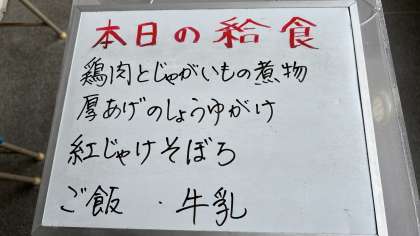 本日の給食
鶏肉とじゃがいもの煮物
厚あげのしょうゆがけ
紅じゃけそぼろ
ご飯 ・ 牛乳